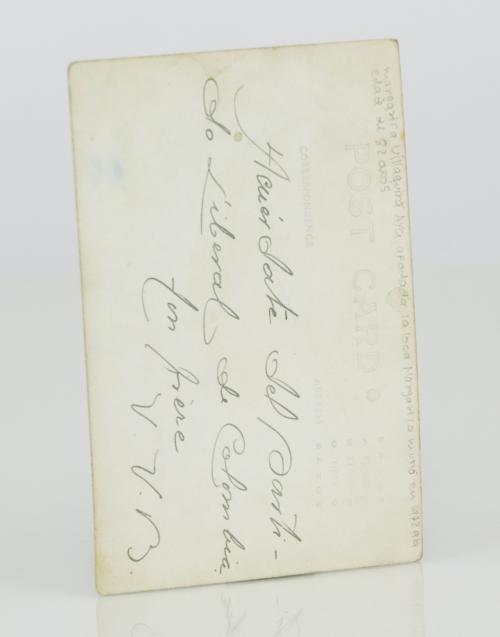 margarita Villaquirá Aya, apodada la loca Margarita murió en 1942 a a
edad de 82 años
POST CARD
CORRESPONDENCE
ADDRESS
Acuérdate del Parti-
do Liberal de Colombia
Ton frère
V. V. B.